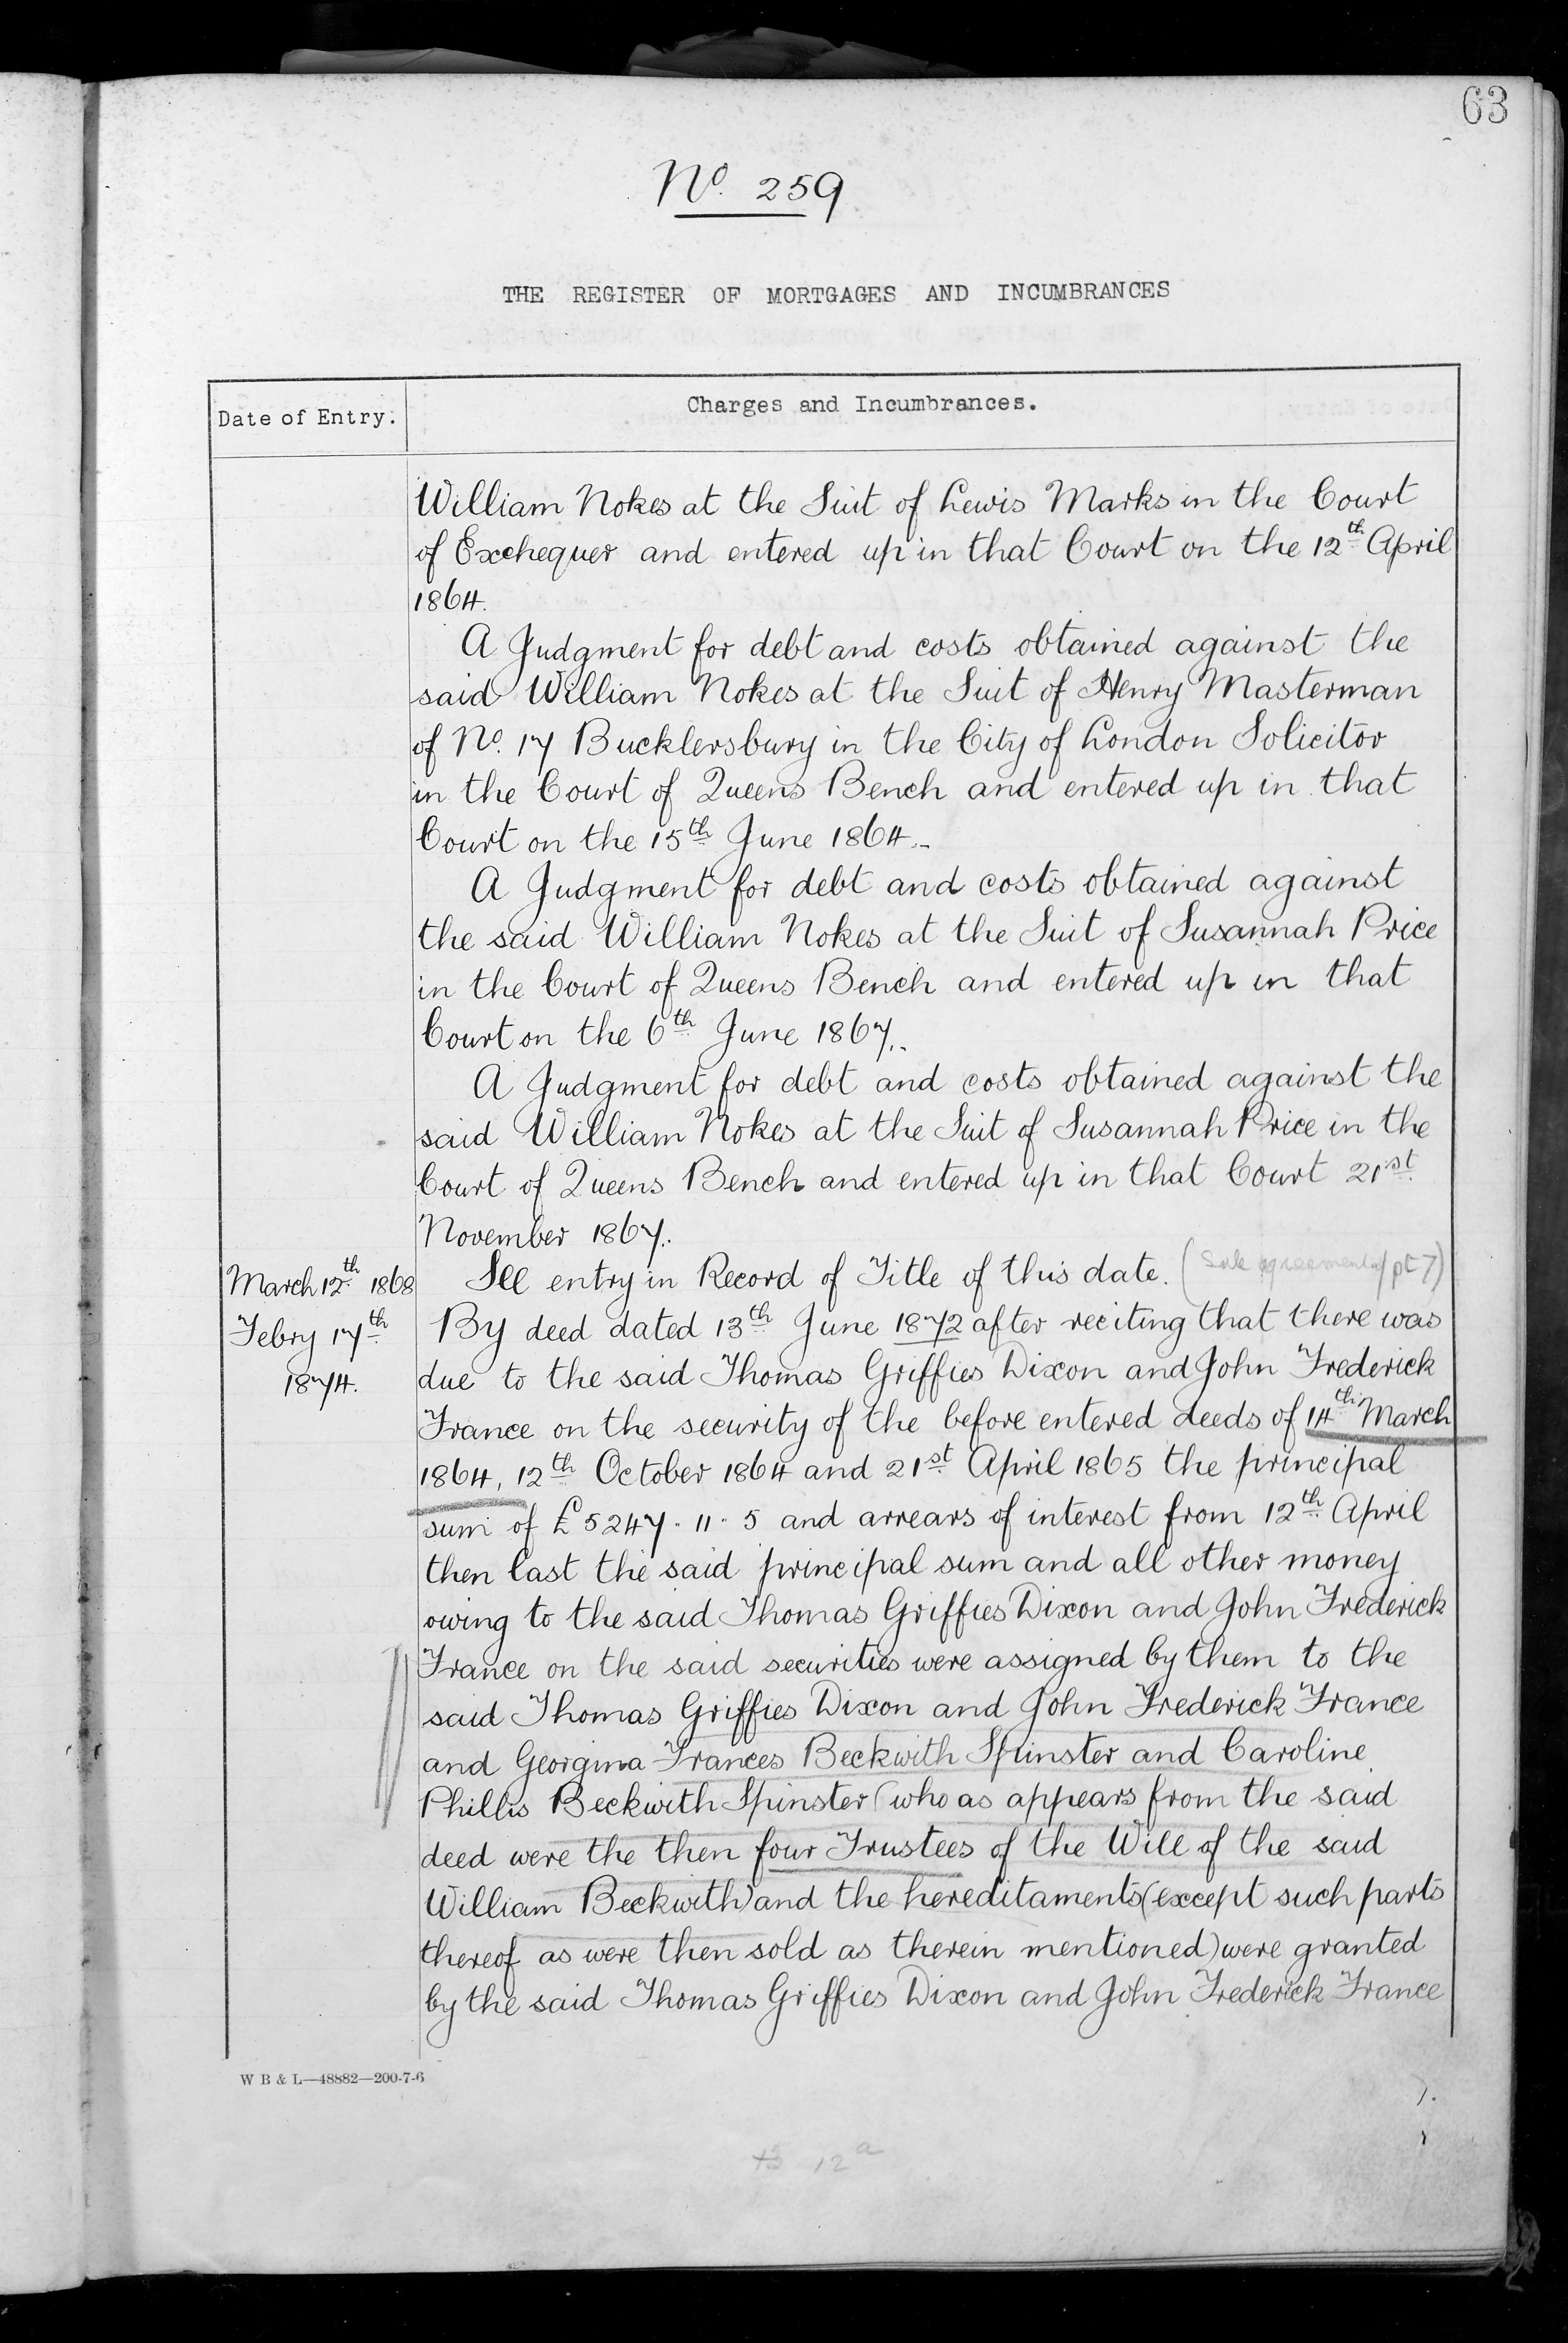 63
No. 259
THE REGISTER OF MORTGAGES AND INCUMBRANCES
Date of Entry.
Charges and Incumbrances.
William Nokes at the Suit of Lewis Marks in the Court
of Exchequer and entered up in that Court on the 12th April
1864.
A Judgment for debt and costs obtained against the
said William Nokes at the Suit of Henry Masterman
of No. 17 Bucklersbury in the City of London Solicitor
in the Court of Queens Bench and entered up in that
Court on the 15th June 1864.-
A Judgment for debt and costs obtained against
the said William Nokes at the Suit of Susannah Price
in the Court of Queens Bench and entered up in that
Court on the 6th June 1867.
A Judgment for debt and costs obtained against the
said William Nokes at the Suit of Susannah Price in the
Court of Queens Bench and entered up in that Court 21st
November 1867.
March 12th 1868 See entry in Record of Title of this date. (Sale agreement pt 7)
Febry 17th By deed dated 13th June 1872 after reciting that there was
1874. due to the said Thomas Griffies Dixon and John Frederick
France on the security of the before entered deeds of 14th March
1864, 12th October 1864 and 21st April 1865 the principal
sum of £5247. 11. 5 and arrears of interest from 12th April
then last the said principal sum and all other money
owing to the said Thomas Griffies Dixon and John Frederick
France on the said securities were assigned by them to the
said Thomas Griffies Dixon and John Frederick France
and Georgina Frances Beckwith Spinster and Caroline
Phillis Beckwith Spinster (who as appears from the said
deed were the then four Trustees of the Will of the said
William Beckwith) and the hereditaments (except such parts
thereof as were then sold as therein mentioned) were granted
by the said Thomas Griffies Dixon and John Frederick France
W B & L—48882—200-7-6
12a